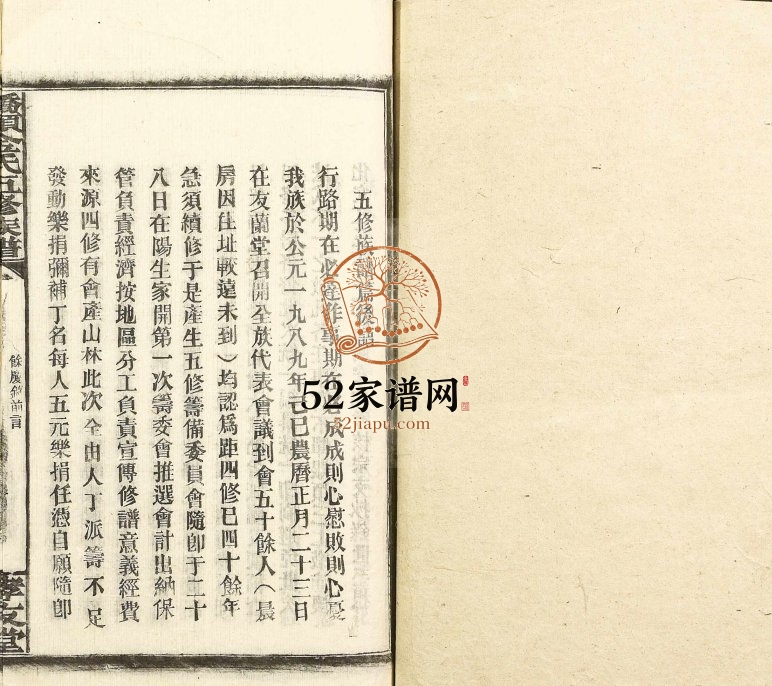 五修族譜篇後語
行路期在必達作事期在必成成則心慰敗則心憂
我族於公元一九八九年己巳農曆正月二十三日
在友蘭堂召開全族代表會議到會五十餘人(晨
房因住址較遠未到)均認爲距四修已四十餘年
急須續修于是產生五修籌備委員會隨卽于二十
八日在陽生家開第一次籌委會推選會計出納保
管負責經濟按地區分工負責宣傳修譜意義經費
來源四修有會產山林此次全由人丁派籌不足
發動樂捐彌補丁名每人五元樂捐任憑自願隨卽
氏五修族譜
前言
友堂
52家谱网
52jiapu.com